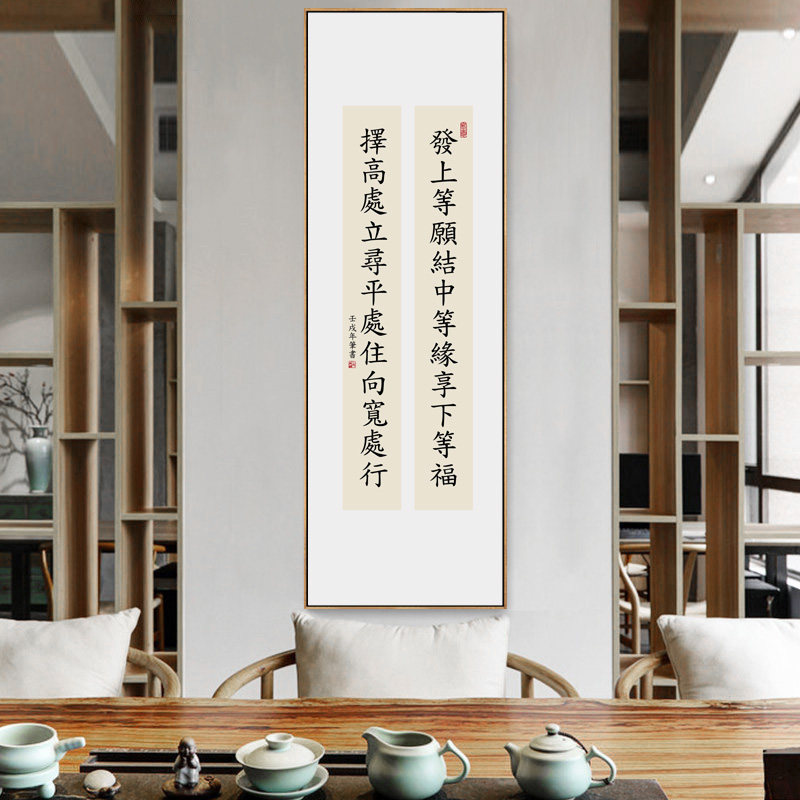 發上等願結中等緣享下等福
擇高處立尋平處住向寬處行
壬戌年筆書